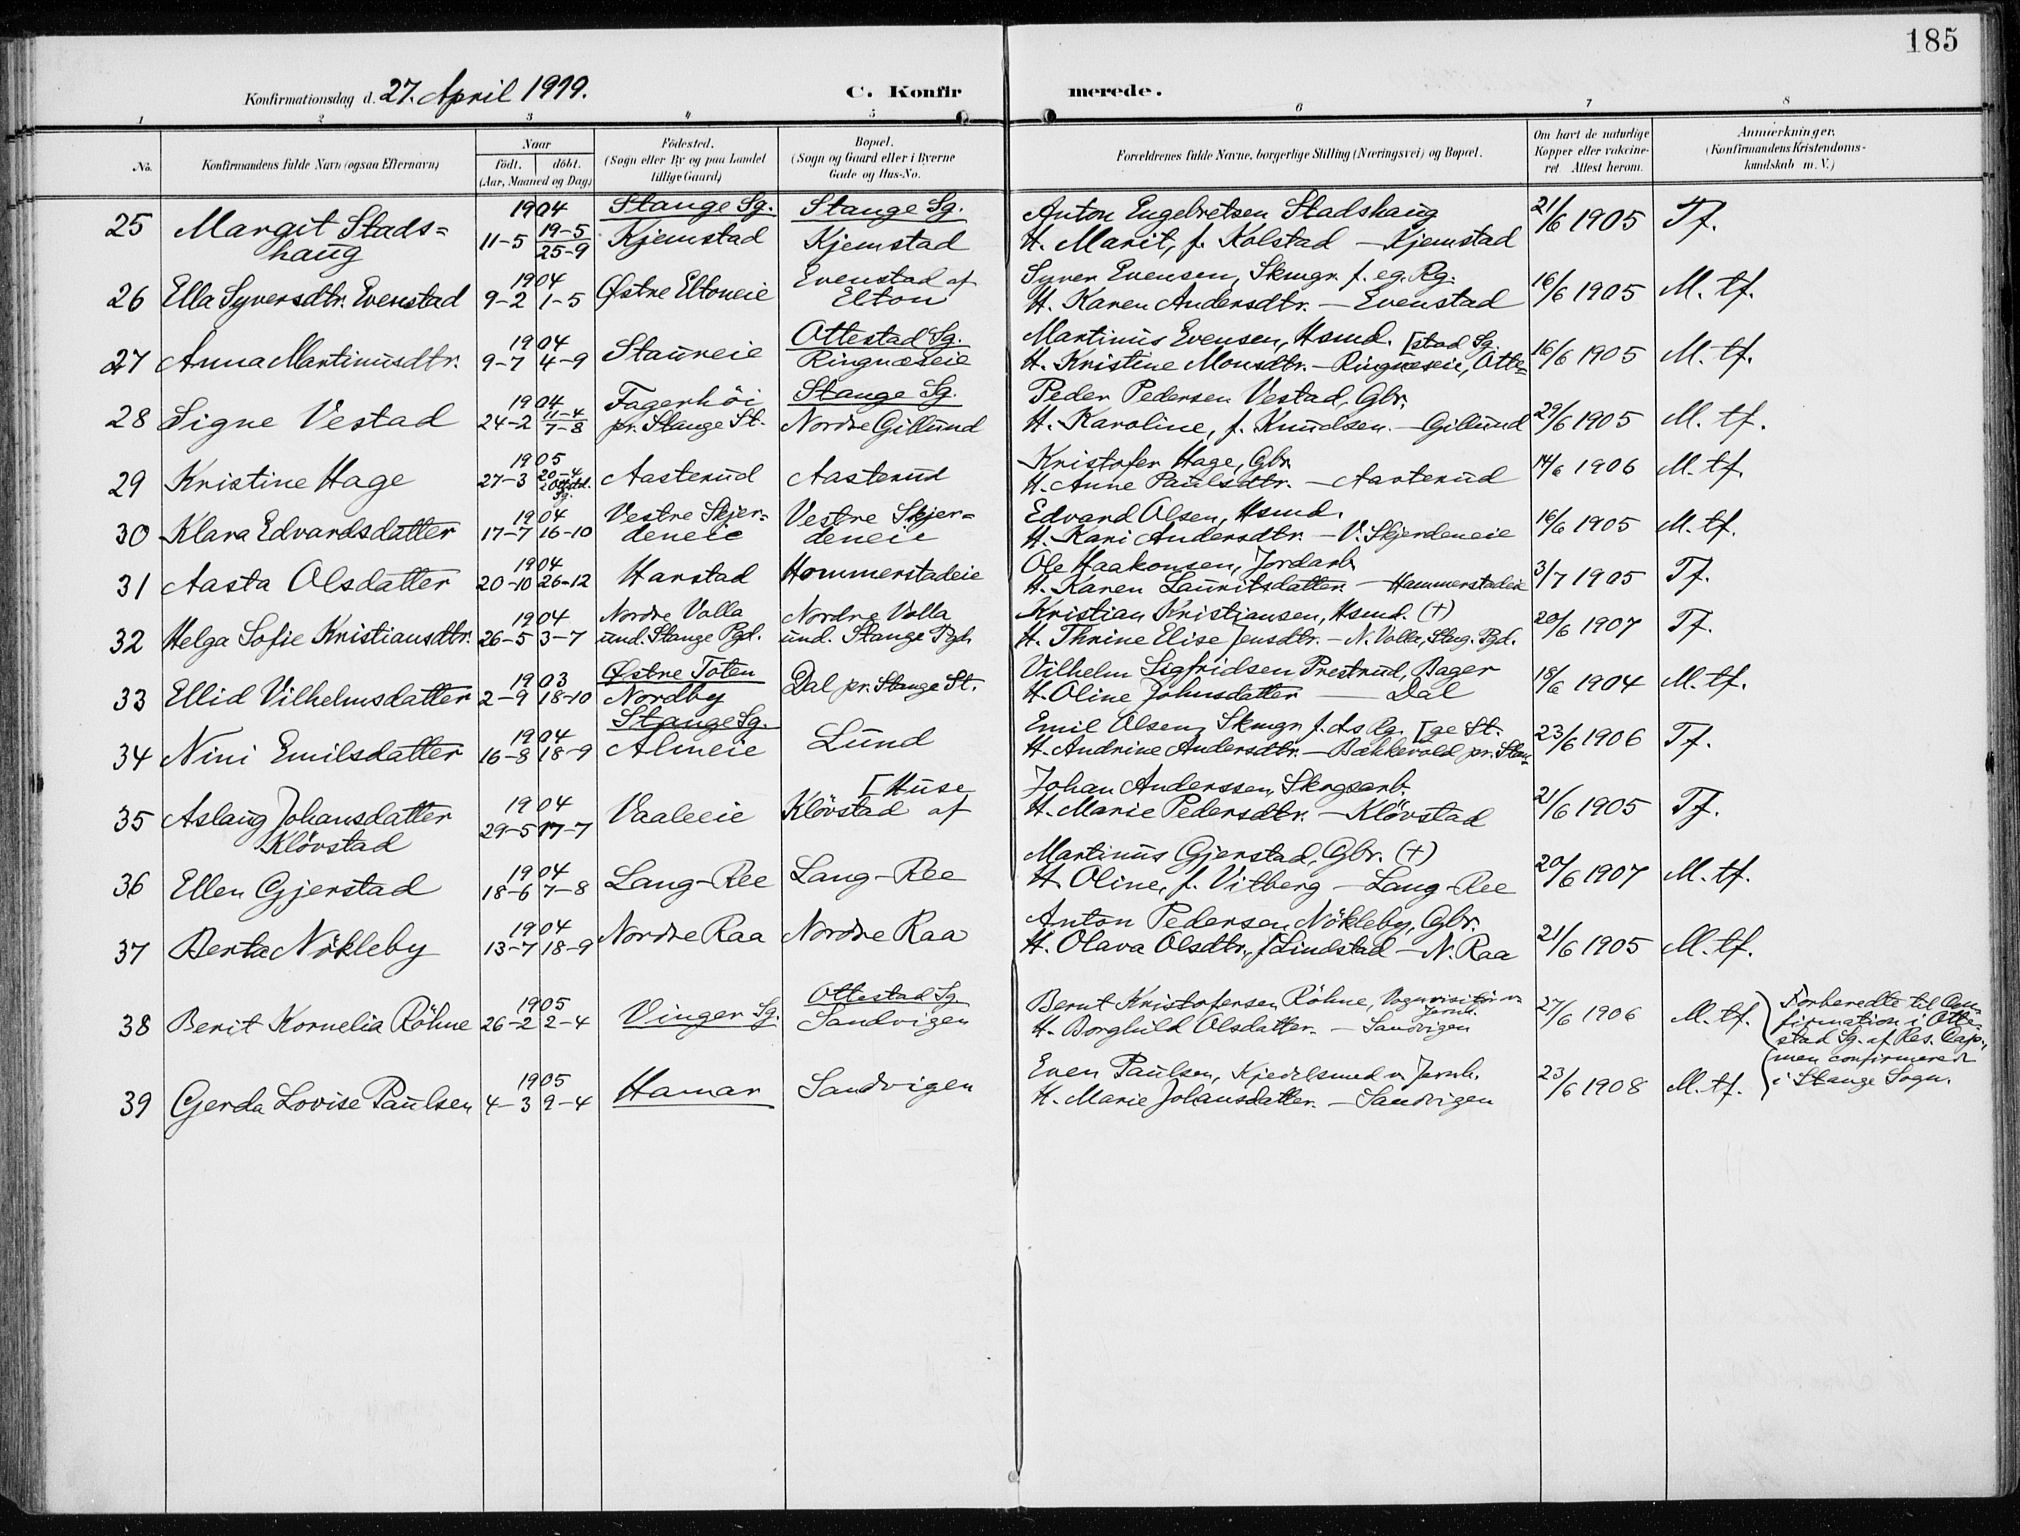 185
Konfirmationsdag d. 27. April 1919.
C. Konfirmerede.
1 2 3 4 5 6 7 8
No.
Konfirmandens fulde Navn (ogsaa Efternavn)
Naar
Födt. döbt.
(Aar, Maaned og Dag)
Födested.
(Sogn eller By og paa Landet
tillige Gaard)
Bopæl.
(Sogn og Gaard eller i Byerne
Gade og Hus-No.
Forældrenes fulde Navne, borgerlige Stilling (Næringsvei) og Bopæl.
Om havt de naturlige
Kopper eller vakcine-
ret Attest herom.
Anmærkninger.
(Konfirmandens Kristendoms-
kundskab m. V.)
1904 Stange Sg. Stange Sg. Anton Engebretsen Stadshaug
25 Margit Stads=
haug 11-5 19-5 25-9 Kjemstad Kjemstad H. Marit, f. Kolstad — Kjemstad 21/6 1905 Tf.
1904 Evenstad af Syver Evensen, Skmgr. f. eg. Rg.
26 Ella Syversdtr. Evenstad 9-2 1-5 Østre Eltoneie Elton H. Karen Andersdtr. — Evenstad 16/6 1905 M. tf.
1904 Ottestad Sg. Martinus Evensen, Hsmd. [stad Sg.
27 Anna Martinusdtr. 9-7 4-9 Staureie Ringnæseie H. Kristine Monsdtr. — Ringnæseie, Otte= 16/6 1905 M. tf.
1904 Fagerhöi Stange Sg. Peder Pedersen Vestad, Gbr.
28 Signe Vestad 24-2 11-4 7-8 pr. Stange St. Nordre Gillund H. Karoline, f. Knudsen. — Gillund 29/6 1905 M. tf.
1905 Kristofer Hage, Gbr.
29 Kristine Hage 27-3 20-4 Aasterud Aasterud H. Anne Paulsdtr. — Aasterud 14/6 1906 M. tf.
1904 Vestre Skjer= Vestre Skjer= Edvard Olsen, Hsmd.
30 Klara Edvardsdatter 17-7 16-10 deneie deneie H. Kari Andersdtr. — V. Skjerdeneie 16/6 1905 M. tf.
1904 Ole Haakonsen, Jordarb.
31 Aasta Olsdatter 20-10 26-12 Harstad Hommerstadeie H. Karen Lauritsdatter — Hammerstadeie 3/7 1905 Tf.
1904 Nordre Volla Nordre Volla Kristian Kristiansen, Hsmd. (+)
32 Helga Sofie Kristiansdtr. 26-5 3-7 und. Stange Pgd. und. Stange Pgd. H. Thrine Elise Jensdtr. — N. Volla, Stng. Pgd. 20/6 1907 Tf.
1903 Østre Toten Vilhelm Sigfridsen Prestrud, Bager
33 Ellid Vilhelmsdatter 2-9 18-10 Nordby Dal pr. Stange St. H. Oline Johnsdatter — Dal 18/6 1904 M. tf.
1904 Stange Sg. Emil Olsen, Skmgr. f. As Rg. [ge St.
34 Nini Emilsdatter 16-8 18-9 Almeie Lund H. Andrine Andersdtr. — Bækkevold pr. Stan= 23/6 1906 Tf.
1904 [Huse Johan Anderssen, Skogsarb.
35 Aslaug Johansdatter
Klövstad 29-5 17-7 Vaaleeie Klövstad af H. Marie Pedersdtr. — Klövstad 21/6 1905 Tf.
1904 Martinus Gjerstad, Gbr. (+)
36 Ellen Gjerstad 18-6 7-8 Lang-Ree Lang-Ree H. Oline, f. Vitberg — Lang-Ree 20/6 1907 M. tf.
1904 Anton Pedersen Nökleby, Gbr.
37 Berta Nökleby 13-7 18-9 Nordre Raa Nordre Raa H. Olava Olsdtr., f. Lindstad — N. Raa 21/6 1905 M. tf.
1905 Ottestad Sg. Bernt Kristofersen Röhne, Vognvisitör v. Jernb.
38 Berit Kornelia Röhne 26-2 2-4 Vinger Sg. Sandvigen H. Borghild Olsdatter. — Sandvigen 27/6 1906 M. tf.
1905 Even Paulsen, Kjedelsmed v. Jernb.
39 Gerda Lovise Paulsen 4-3 9-4 Hamar Sandvigen H. Marie Johansdatter. — Sandvigen 23/6 1908 M. tf.
Forberedte til Con-
firmation i Otte-
stad Sg. af Res. Cap.,
men confirmered
i Stange Sogn.